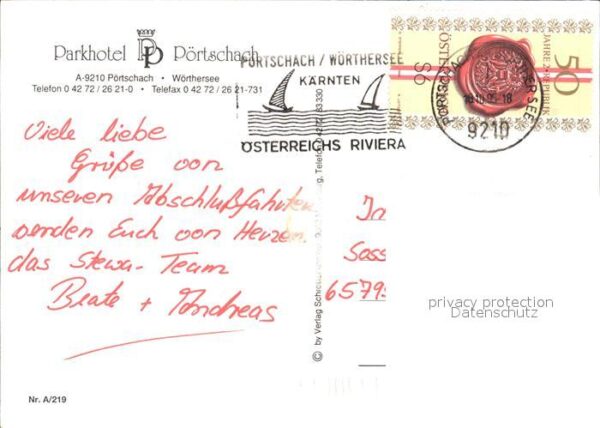 Parkhotel PP Pörtschach
A-9210 Pörtschach · Wörthersee
Telefon 0 42 72 / 26 21-0 · Telefax 0 42 72 / 26 21-731
PÖRTSCHACH / WÖRTHERSEE
KÄRNTEN
ÖSTERREICHS RIVIERA
50
JAHRE 2. REPUBLIK
ÖSTERREICH
S6
9210
Viele liebe
Grüße von
unseren Abschlußfahrten
senden Euch von Herzen
das Stewa-Team
Beate + Andreas
Sass
6579
© by Verlag
privacy protection
Datenschutz
Nr. A/219